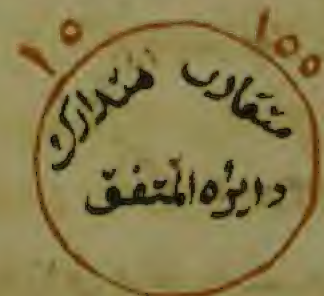 ١٥٥ ١٥
متقارب متدارك
دايرٔه المتفق